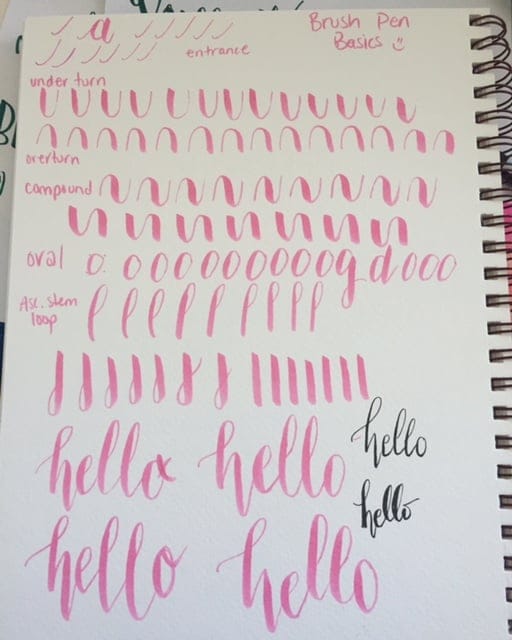 a
Brush Pen
Basics
entrance
under turn
overturn
compound
oval
Asc. stem
loop
hello hello hello
hello
hello hello